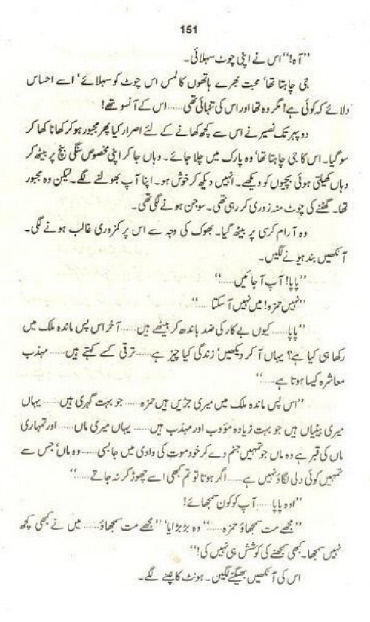 151
”آہ!“ اس نے اپنی چوٹ سہلائی۔
جی چاہتا تھا‘ محبت بھرے ہاتھوں کا لمس اس چوٹ کو سہلائے‘ اسے احساس
دلائے کہ کوئی ہے! مگر وہ تھا اور اس کی تنہائی تھی...... اس کے آنسو تھے!
دوپہر تک نصیر نے اس سے کچھ کھانے کے لئے اصرار کیا پھر مجبور ہو کر کھانا کھا کر
سو گیا۔ اس کا جی چاہتا تھا‘ وہ پارک میں چلا جائے۔ وہاں جا کر اپنی مخصوص سنگی بنچ پر بیٹھ کر
وہاں کھیلتی ہوئی بچیوں کو دیکھے۔ انہیں دیکھ کر خوش ہو۔ اپنا آپ بھولنے لگے۔ لیکن وہ مجبور
تھا۔ گھٹنے کی چوٹ منہ زوری کر رہی تھی۔ سوجن ہونے لگی تھی۔
وہ آرام کرسی پر بیٹھ گیا۔ بھوک کی وجہ سے اس پر کمزوری غالب ہونے لگی۔
آنکھیں بند ہونے لگیں۔
”پاپا! آپ آ جائیں......“
”نہیں حمزہ! میں نہیں آ سکتا......“
”پاپا...... کیوں بے کار کی ضد باندھ کر بیٹھے ہیں...... آخر اس پس ماندہ ملک میں
رکھا ہی کیا ہے؟ یہاں آ کر دیکھیں‘ زندگی کیا چیز ہے...... ترقی کسے کہتے ہیں...... مہذب
معاشرہ کیسا ہوتا ہے......“
”اس پس ماندہ ملک میں میری جڑیں ہیں حمزہ...... جو بہت گہری ہیں...... یہاں
میری بیٹیاں ہیں جو بہت زیادہ مؤدب اور مہذب ہیں...... یہاں میری ماں...... اور تمہاری
ماں کی قبر ہے وہ ماں جو تمہیں جنم دے کر خود موت کی وادی میں جا بسی...... وہ ماں‘ جس سے
تمہیں کوئی دلی لگاؤ نہیں ہے...... اگر ہوتا تو تم کبھی اسے چھوڑ کر نہ جاتے......“
”اوہ پاپا...... آپ کو کون سمجھائے!“
”مجھے مت سمجھاؤ حمزہ......“ وہ بڑبڑایا‘ ”مجھے مت سمجھاؤ...... میں نے کبھی کچھ
نہیں سمجھا۔ کبھی سمجھنے کی کوشش ہی نہیں کی!“
اس کی آنکھیں بھیگنے لگیں۔ ہونٹ کانپنے لگے۔